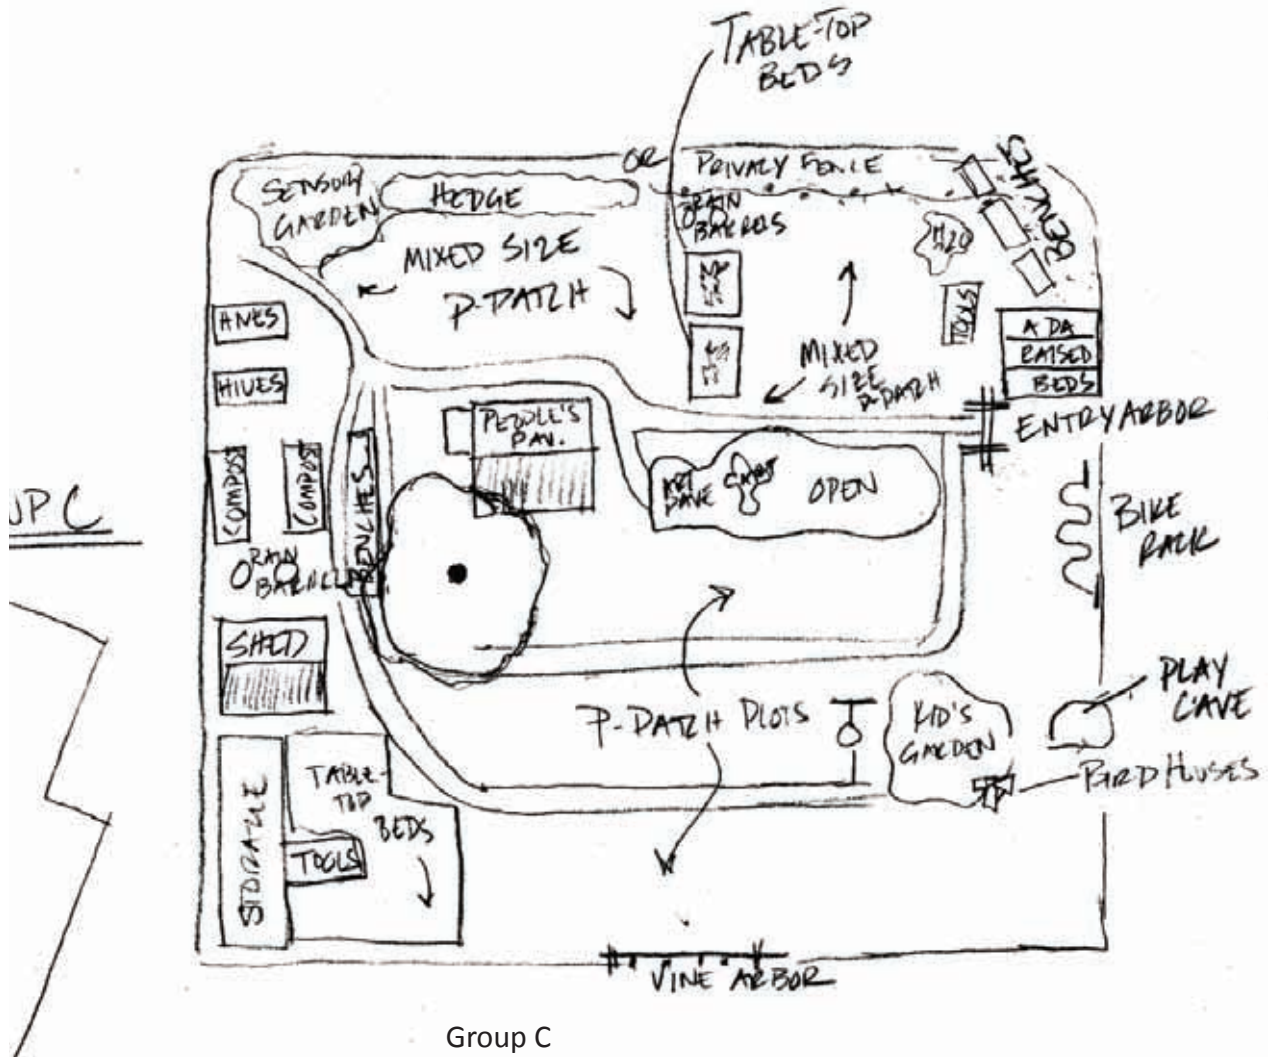 TABLE-TOP
BEDS
OR
PRIVACY FENCE
BENCHES
SENSORY
GARDEN
HEDGE
RAIN
BARRELS
H2O
MIXED SIZE
P-PATCH
TOOLS
HIVES
HIVES
ADA
RAISED
BEDS
MIXED
SIZE
P-PATCH
ENTRY ARBOR
PEOPLE'S
PAV.
COMPOST
COMPOST
BENCHES
ART
CAVE
OPEN
BIKE
RACK
UP C
RAIN
BARRELS
SHED
P-PATCH PLOTS
KID'S
GARDEN
PLAY
CAVE
BIRD HOUSES
STORAGE
TABLE-
TOP
BEDS
TOOLS
VINE ARBOR
Group C